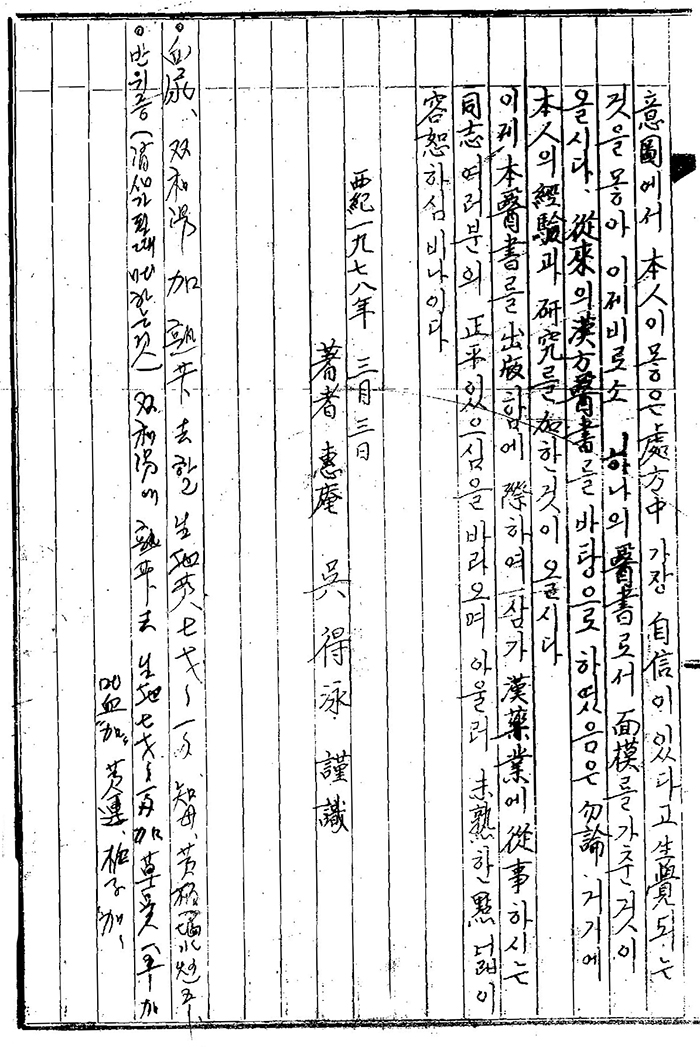 意圖에서 本人이 몽은 處方中 가장 自信이 있다고 生覺되는
것을 몽아 이제비로소 하나의 醫書로서 面模를 가추운것이
올시다. 從來의 漢方醫書를 바탕으로 하였음은 勿論 거기에
本人의 經驗과 硏究를 加한것이 올시다
이제 本醫書를 出版함에 際하여 삼가 漢藥業에 從事하시는
同志 여러분의 正平 있으심을 바라오며 아울러 未熟한 點 너그러이
容恕하심 비나이다
西紀一九七八年 三月 三日
著者 惠庵 吳得泳 謹識
血尿、双和湯 加 熟芐 去할 生地黃 七 知母、黃栢
반위증 双和湯에 熟芐 去 生地七 加 草果 一 加
吐血 加 黃連、梔子 加